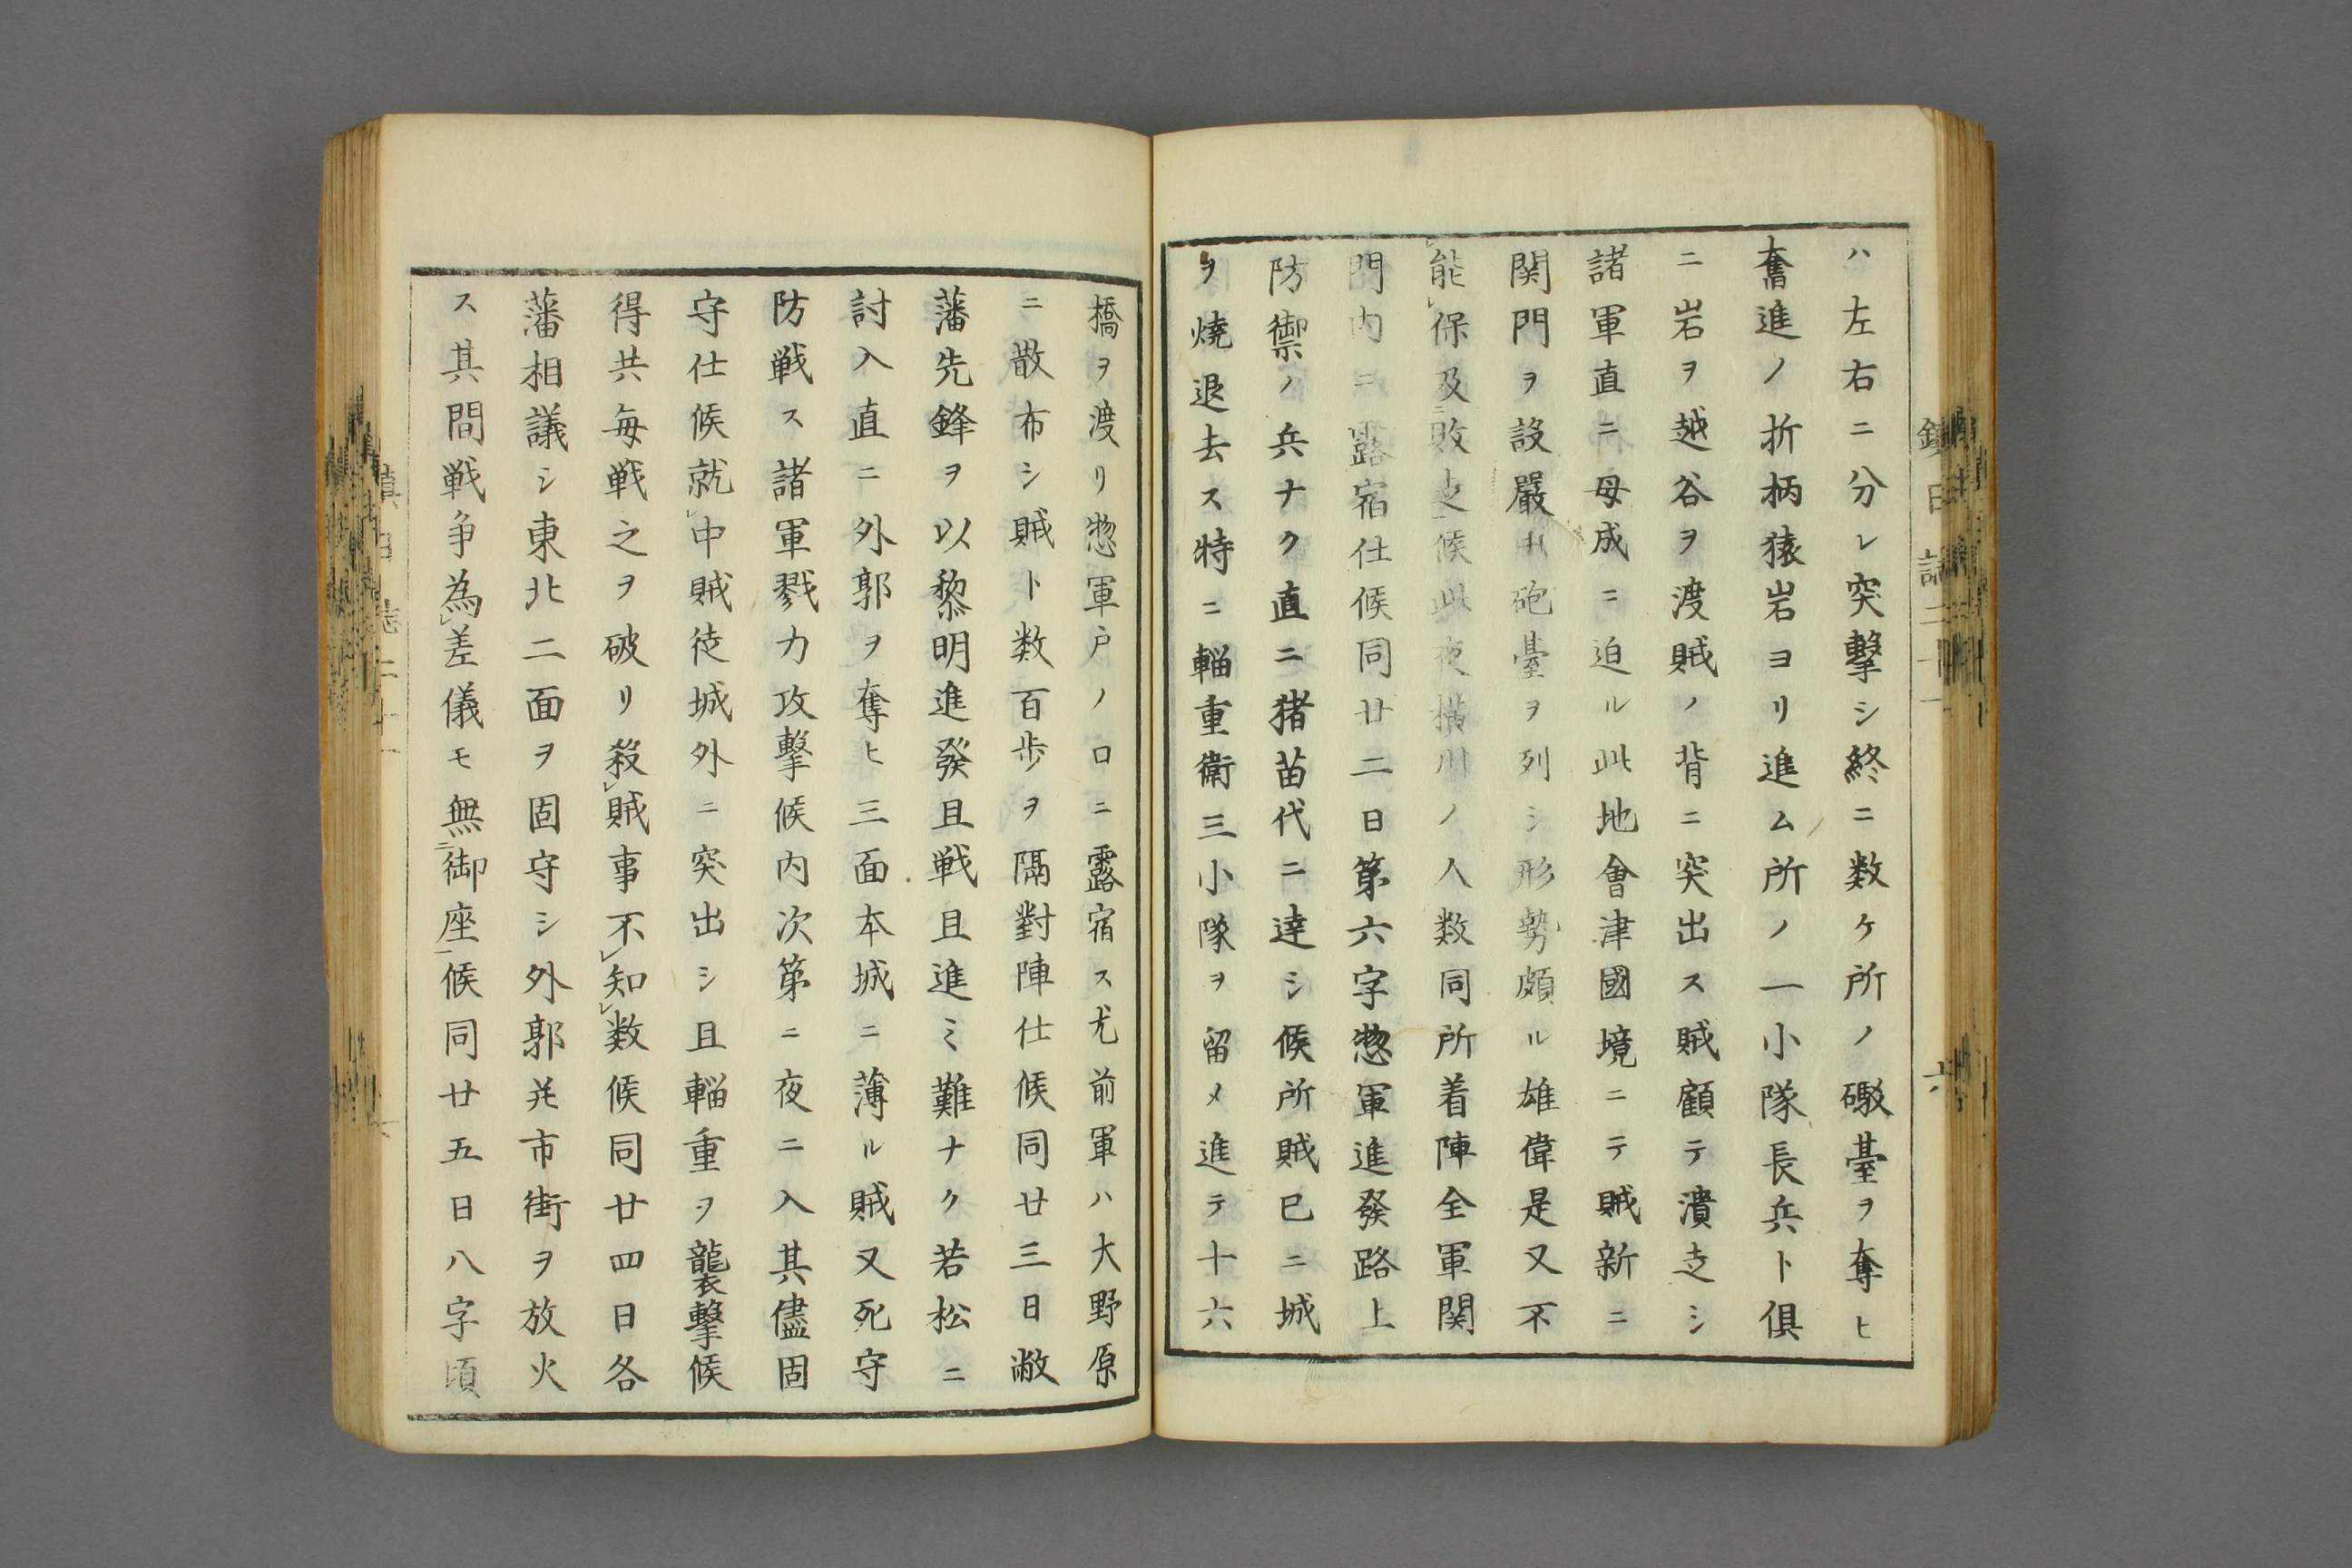 ハ左右ニ分レ突擊シ終ニ数ケ所ノ礮臺ヲ奪ヒ
奮進ノ折柄猿岩ヨリ進ム所ノ一小隊長兵ト俱
ニ岩ヲ越谷ヲ渡賊ノ背ニ突出ス賊顧テ潰走シ
諸軍直ニ母成ニ迫ル此地會津國境ニテ賊新ニ
関門ヲ設嚴ナル砲臺ヲ列シ形勢頗ル雄偉是又不
能レ保及二敗走一候此夜横川ノ人数同所着陣全軍関
門内ニ露宿仕候同廿二日第六字惣軍進發路上
防禦ノ兵ナク直ニ猪苗代ニ達シ候所賊已ニ城
ヲ燒退去ス特ニ輜重衛三小隊ヲ留メ進テ十六
橋ヲ渡リ惣軍戸ノ口ニ露宿ス尤前軍ハ大野原
ニ散布シ賊ト数百歩ヲ隔對陣仕候同廿三日敝
藩先鋒ヲ以黎明進發且戦且進ミ難ナク若松ニ
討入直ニ外郭ヲ奪ヒ三面本城ニ薄ル賊又死守
防戦ス諸軍戮力攻擊候内次第ニ夜ニ入其儘固
守仕候就レ中賊徒城外ニ突出シ且輜重ヲ襲擊候
得共毎戦之ヲ破リ殺レ賊事不レ知レ数候同廿四日各
藩相議シ東北二面ヲ固守シ外郭幷市街ヲ放火
ス其間戦争為レ差儀モ無二御座一候同廿五日八字頃
鎮日誌二十一
六